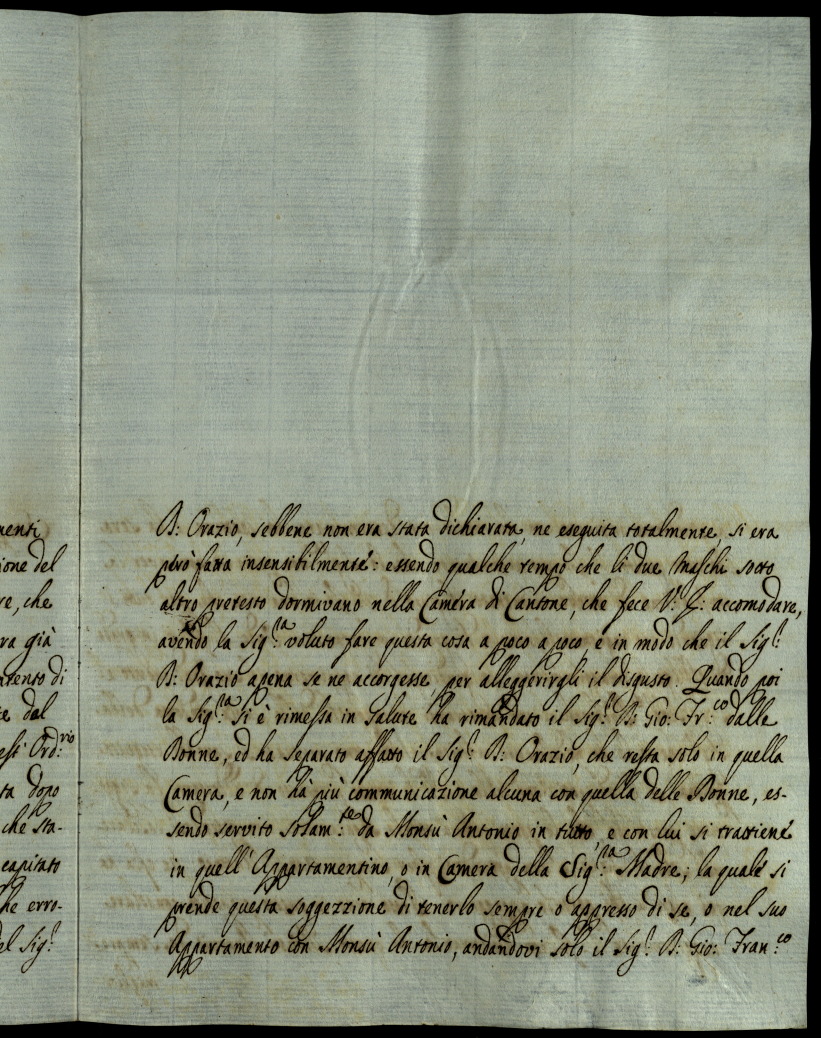 menti
ione del
re, che
ra già
te del
Ord:rio
ta dopo
che sta-
capitato
he erro-
el Sig.r
B: Orazio, sebbene non era stata dichiarata, ne eseguita totalmente, si era
però fatta insensibilmente: essendo qualche tempo che li due Maschi sotto
altro pretesto dormivano nella Camera di Cantone, che fece V: accomodare,
avendo la Sig.ra voluto fare questa cosa a poco a poco, e in modo che il Sig.r
B: Orazio apena se ne accorgesse per alleggerirgli il disgusto. Quando poi
la Sig.ra si è rimessa in salute ha rimandato il Sig.r B: Gio: Fr:co dalle
Bonne, ed ha separato affatto il Sig.r B: Orazio, che resta solo in quella
Camera, e non hà più communicazione alcuna con quella delle Bonne, es-
sendo servito solam:te da Monsù Antonio in tutto, e con lui si trattiene
in quell'Appartamentino, o in Camera della Sig.ra Madre; la quale si
prende questa soggezzione di tenerlo sempre o appresso di se, o nel suo
Appartamento con Monsù Antonio, andandovi solo il Sig.r B: Gio: Fran:co